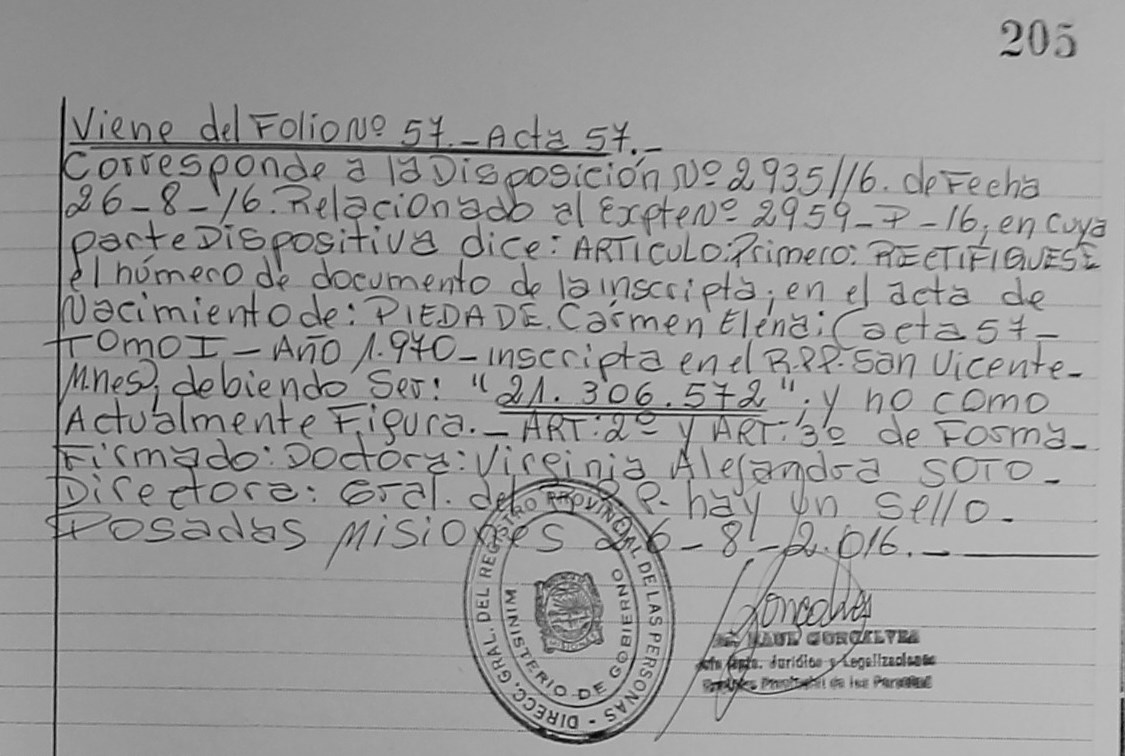 205
Viene del Folio Nº 57.- Acta 57.-
Corresponde a la Disposición Nº 2935/16. de Fecha
26-8-16. Relacionado al Expte Nº 2959-P-16; en cuya
parte Dispositiva dice: ARTICULO: Primero: RECTIFIQUESE
el número de documento de la inscripta; en el acta de
Nacimiento de: PIEDADE. Carmen Elena: (acta 57-
TOMO I - Año 1.970 - inscripta en el R.P.P. San Vicente-
Mnes), debiendo Ser: "21.306.572"; y no como
Actualmente Figura.- ART: 2º y ART: 3º de Forma-
Firmado: Doctora: Virginia Alejandra SOTO-
Directora: Gral. del R.P. hay un Sello-
Posadas Misiones 26-8-2.016.-
DIRECC. GRAL. DEL REGISTRO PROVINCIAL DE LAS PERSONAS -
MINISTERIO DE GOBIERNO
RAUL GONCALVES
Jurídico y Legalizaciones
Provincial de las Personas